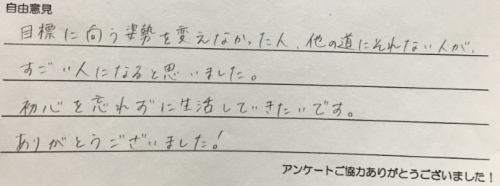 自由意見
目標に向う姿勢を変えなかった人、他の道にそれない人が、
すごい人になると思いました。
初心を忘れずに生活していきたいです。
ありがとうございました!
アンケートご協力ありがとうございました!